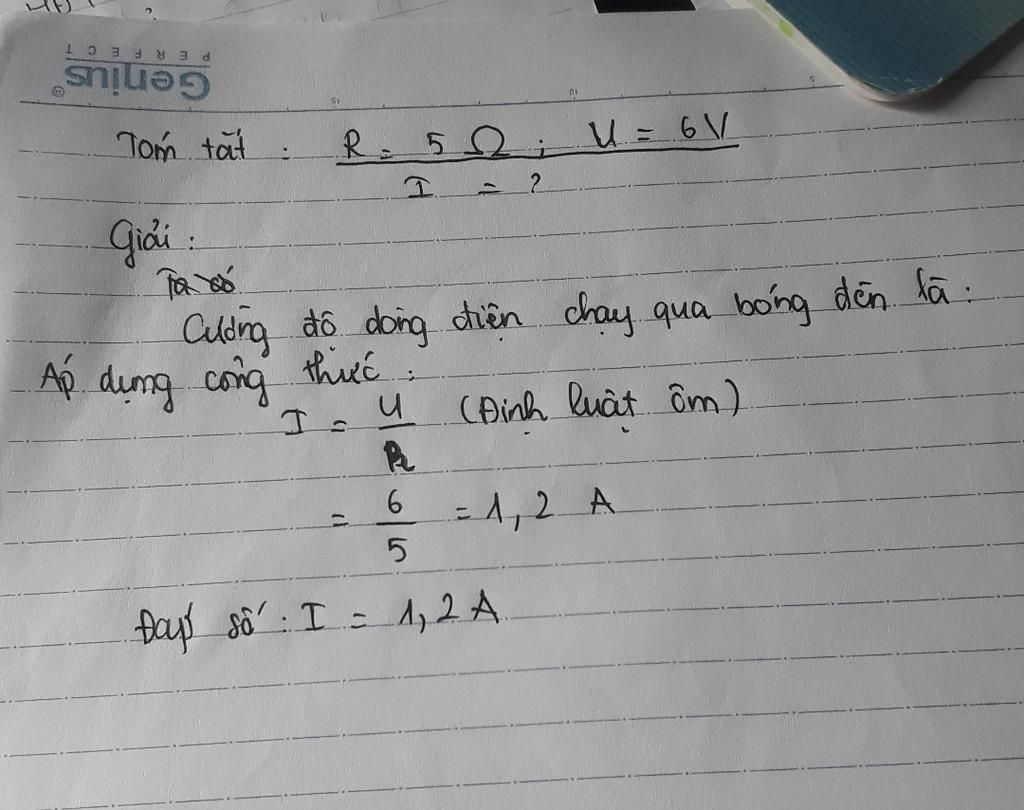 Genius®
PERFECT
Tóm tắt : R = 5 Ω ; U = 6V
I = ?
Giải :
Ta có
Cường độ dòng điện chạy qua bóng đèn là :
Áp dụng công thức :
I = U/R (Định luật ôm)
= 6/5 = 1,2 A
Đáp số : I = 1,2 A